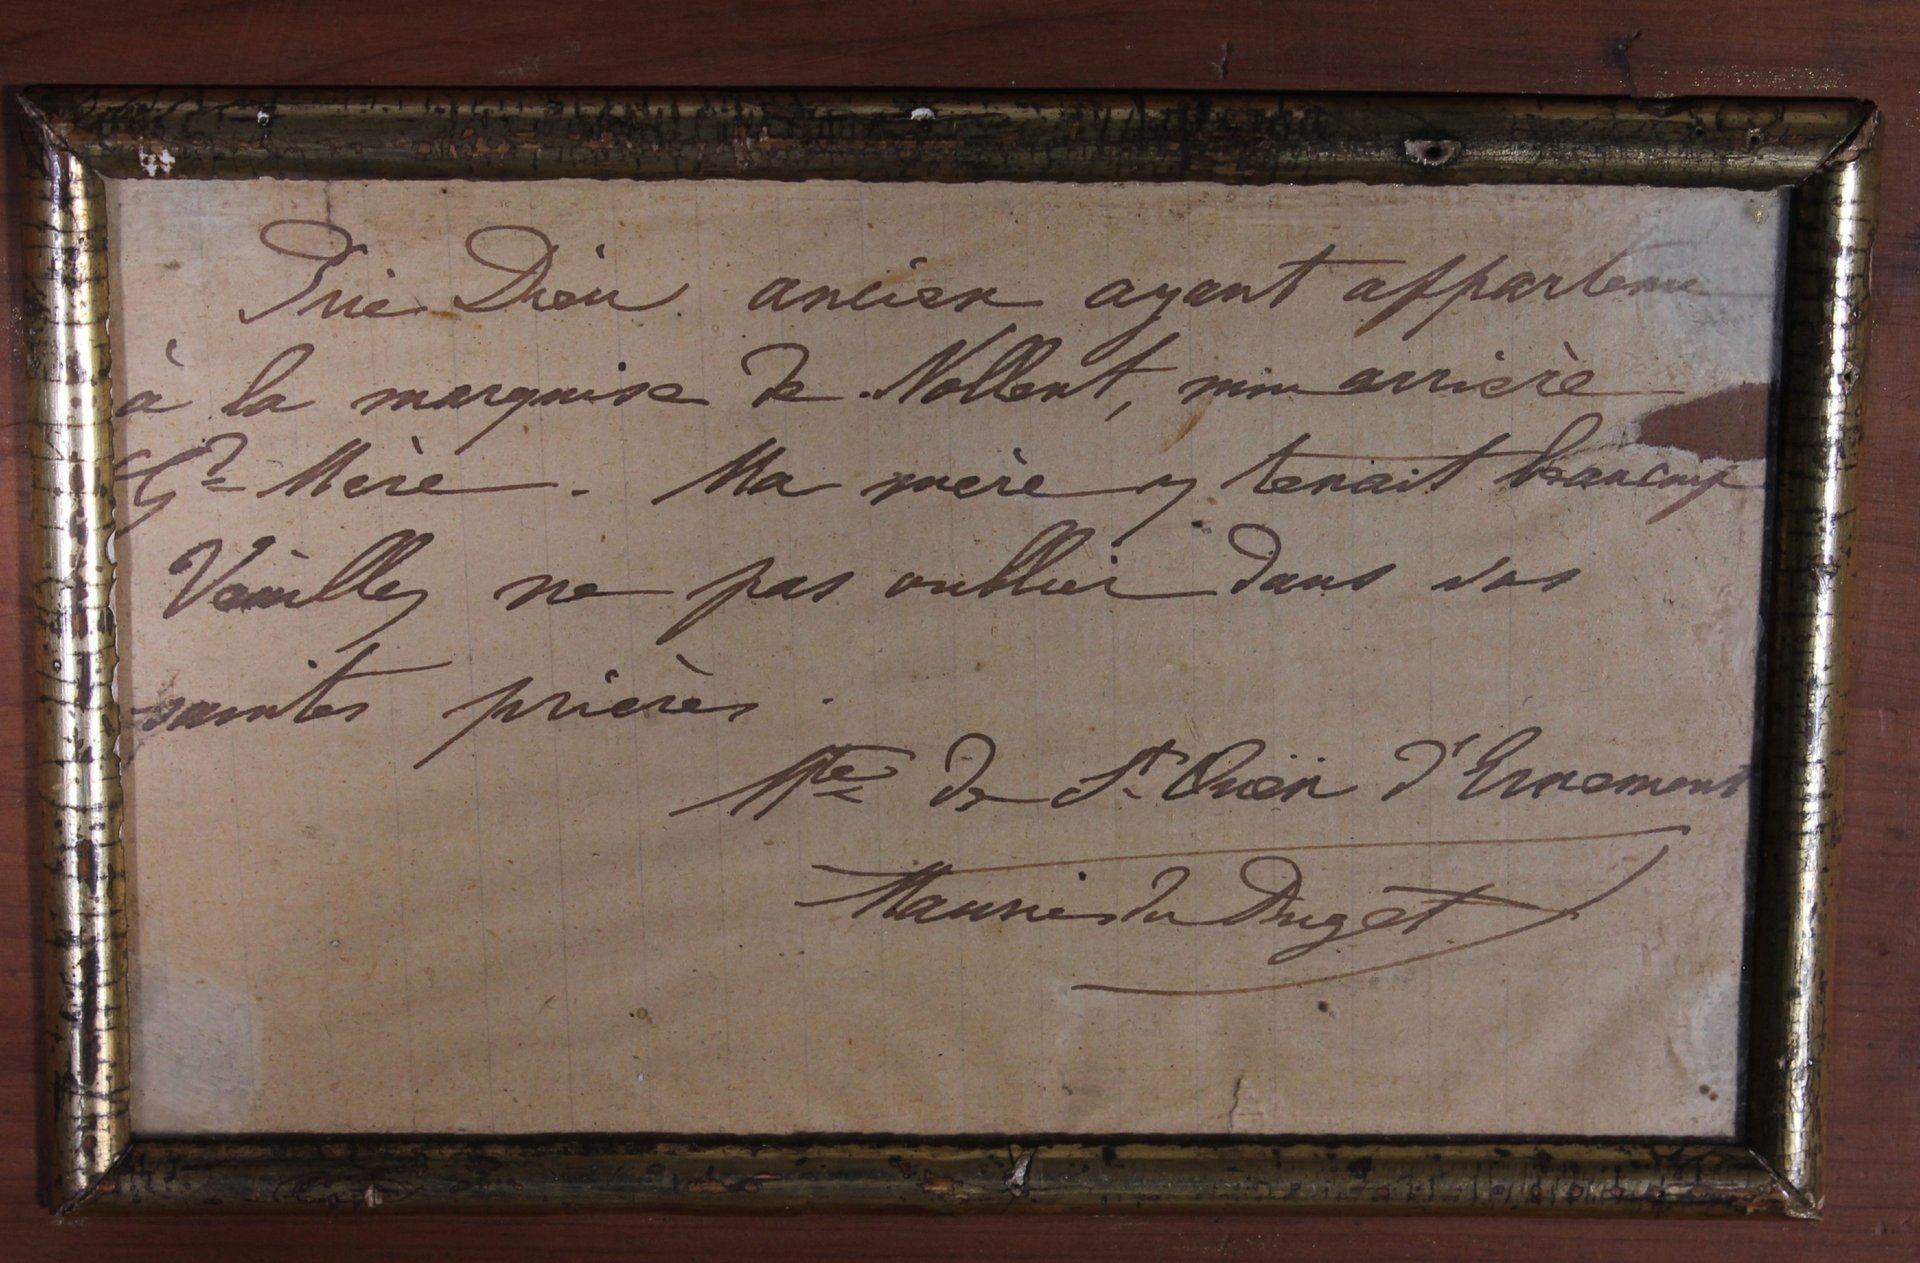 Prie Dieu ancien ayant appartenu
à la marquise de Nollent, mon arrière
Gde Mère. Ma mère y tenait beaucoup
Veuillez ne pas oublier dans vos
saintes prières.
Mise de St Ouen d'Ernemont
du Puget